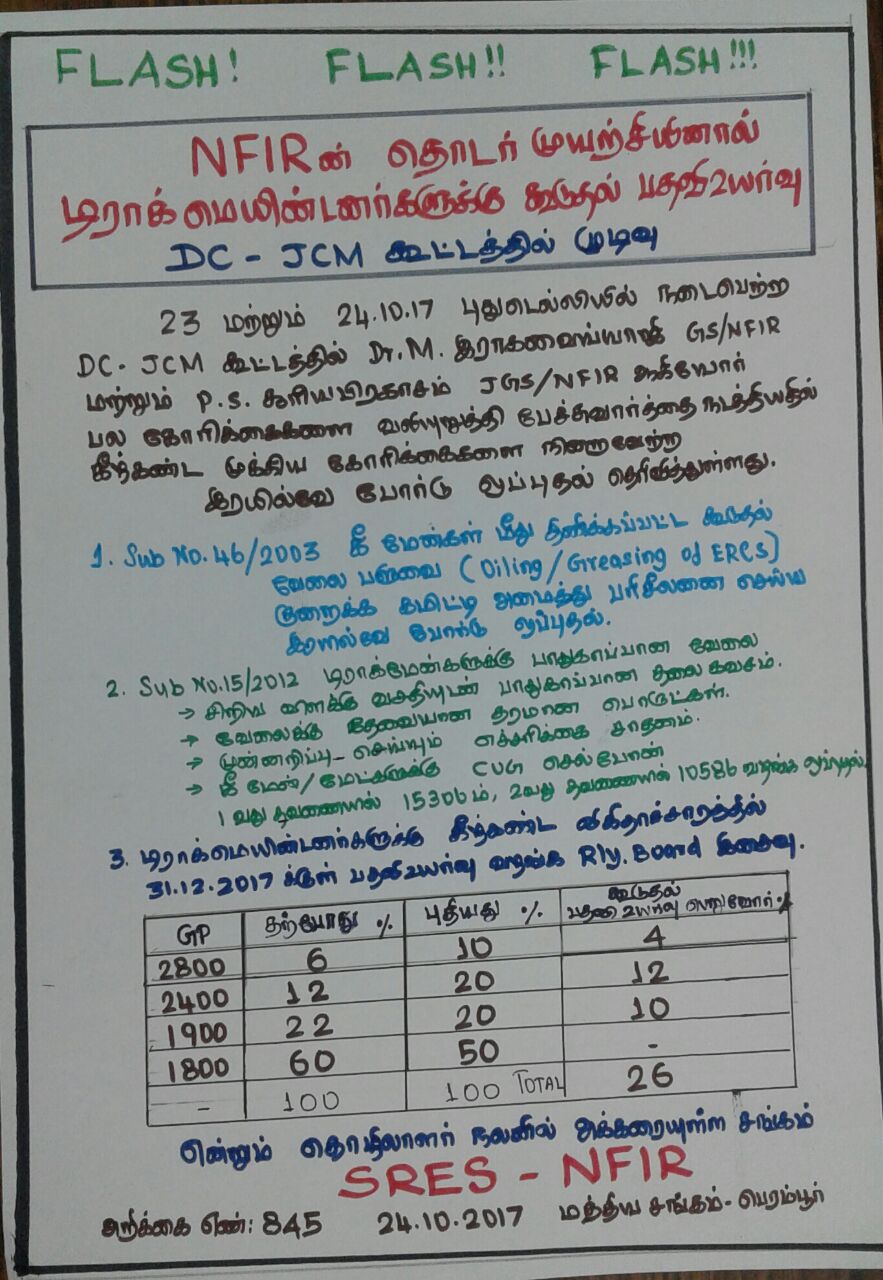 FLASH! FLASH!! FLASH!!!
NFIRன் தொடர் முயற்சியினால்
டிராக் மெயின்டனர்களுக்கு கூடுதல் பதவிஉயர்வு
DC - JCM கூட்டத்தில் முடிவு
23 மற்றும் 24.10.17 புதுடெல்லியில் நடைபெற்ற
DC - JCM கூட்டத்தில் Dr. M. இராகவைய்யாஜி GS/NFIR
மற்றும் P.S. சூரியபிரகாசம் JGS/NFIR ஆகியோர்
பல கோரிக்கைகளை வலியுறுத்தி பேச்சுவார்த்தை நடத்தியதில்
கீழ்கண்ட முக்கிய கோரிக்கைகளை நிறைவேற்ற
இரயில்வே போர்டு ஒப்புதல் தெரிவித்துள்ளது.
1. Sub No. 46/2003 கீ மேன்கள் மீது திணிக்கப்பட்ட கூடுதல்
வேலை பளுவை (Oiling/Greasing of ERCs)
குறைக்க கமிட்டி அமைத்து பரிசீலனை செய்ய
இரயில்வே போர்டு ஒப்புதல்.
2. Sub No.15/2012 டிராக்மேன்களுக்கு பாதுகாப்பான வேலை
→ சிறிய விளக்கு வசதியுடன் பாதுகாப்பான தலை கவசம்.
→ வேலைக்கு தேவையான தரமான பொருட்கள்.
→ முன்னறிப்பு செய்யும் எச்சரிக்கை சாதனம்.
→ கீ மேன்/மேட்களுக்கு CUG செல்போன்
1 வது தவணையில் 15306ம், 2வது தவணையில் 10586 வழங்க ஒப்புதல்
3. டிராக்மெயின்டனர்களுக்கு கீழ்கண்ட விகிதாச்சாரத்தில்
31.12.2017 க்குள் பதவிஉயர்வு வழங்க Rly. Board இசைவு.
GP தற்போது % புதியது % கூடுதல்
பதவி உயர்வு பெறுவோர் %
2800 6 10 4
2400 12 20 12
1900 22 20 10
1800 60 50 -
- 100 100 TOTAL 26
என்றும் தொழிலாளர் நலனில் அக்கரையுள்ள சங்கம்
SRES - NFIR
அறிக்கை எண்: 845 24.10.2017 மத்திய சங்கம் - பெரம்பூர்